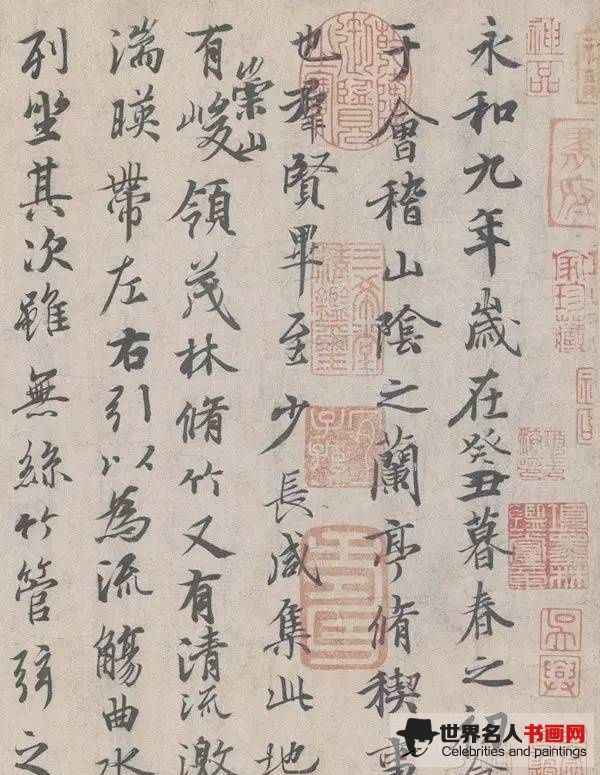 永和九年歲在癸丑暮春之初
于會稽山陰之蘭亭脩稧事
也羣賢畢至少長咸集此地
有崇山峻領茂林脩竹又有清流激
湍暎帶左右引以為流觴曲水
列坐其次雖無絲竹管弦之
神品
三希堂精鑑璽
宜子孫
世界名人书画网
Celebrities and paintings